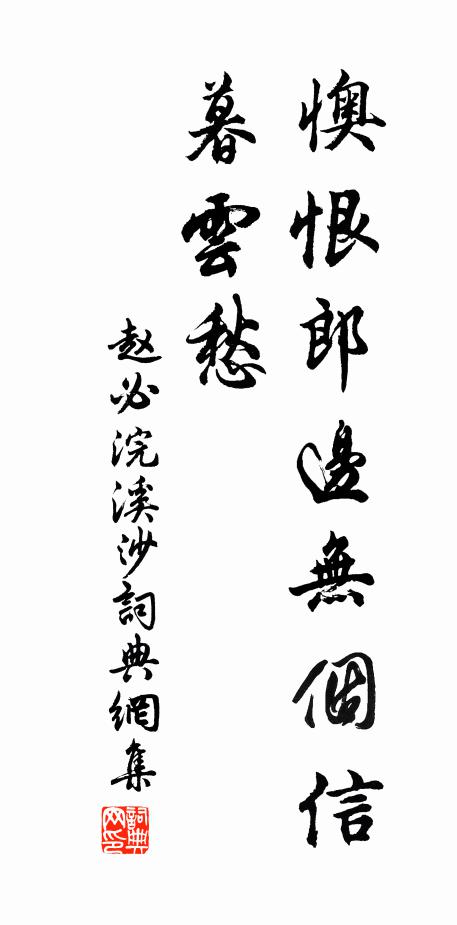 懊恨郎邊無個信
暮雲愁
赵必浣溪沙詞典網集
詞典网印